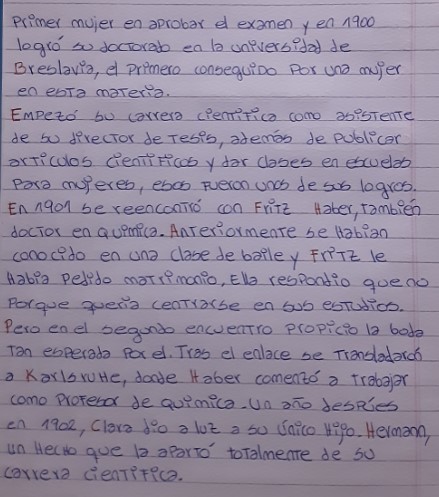 Primer mujer en aprobar el examen y en 1900
logró su doctorado en la universidad de
Breslavia, el primero conseguido por una mujer
en esta materia.
Empezó su carrera científica como asistente
de su director de tesis, además de publicar
artículos científicos y dar clases en escuelas
para mujeres, esos fueron unos de sus logros.
En 1901 se reencontró con Fritz Haber, también
doctor en química. Anteriormente se habian
conocido en una clase de baile y Fritz le
había pedido matrimonio, Ella respondio que no
porque quería centrarse en sus estudios.
Pero en el segundo encuentro propicio la boda
tan esperada por el. Tras el enlace se transladaron
a Karlsruhe, donde Haber comenzó a trabajar
como profesor de química. Un año despúes
en 1902, Clara dio a luz a su único hijo. Hermann,
un hecho que la apartó totalmente de su
carrera científica.